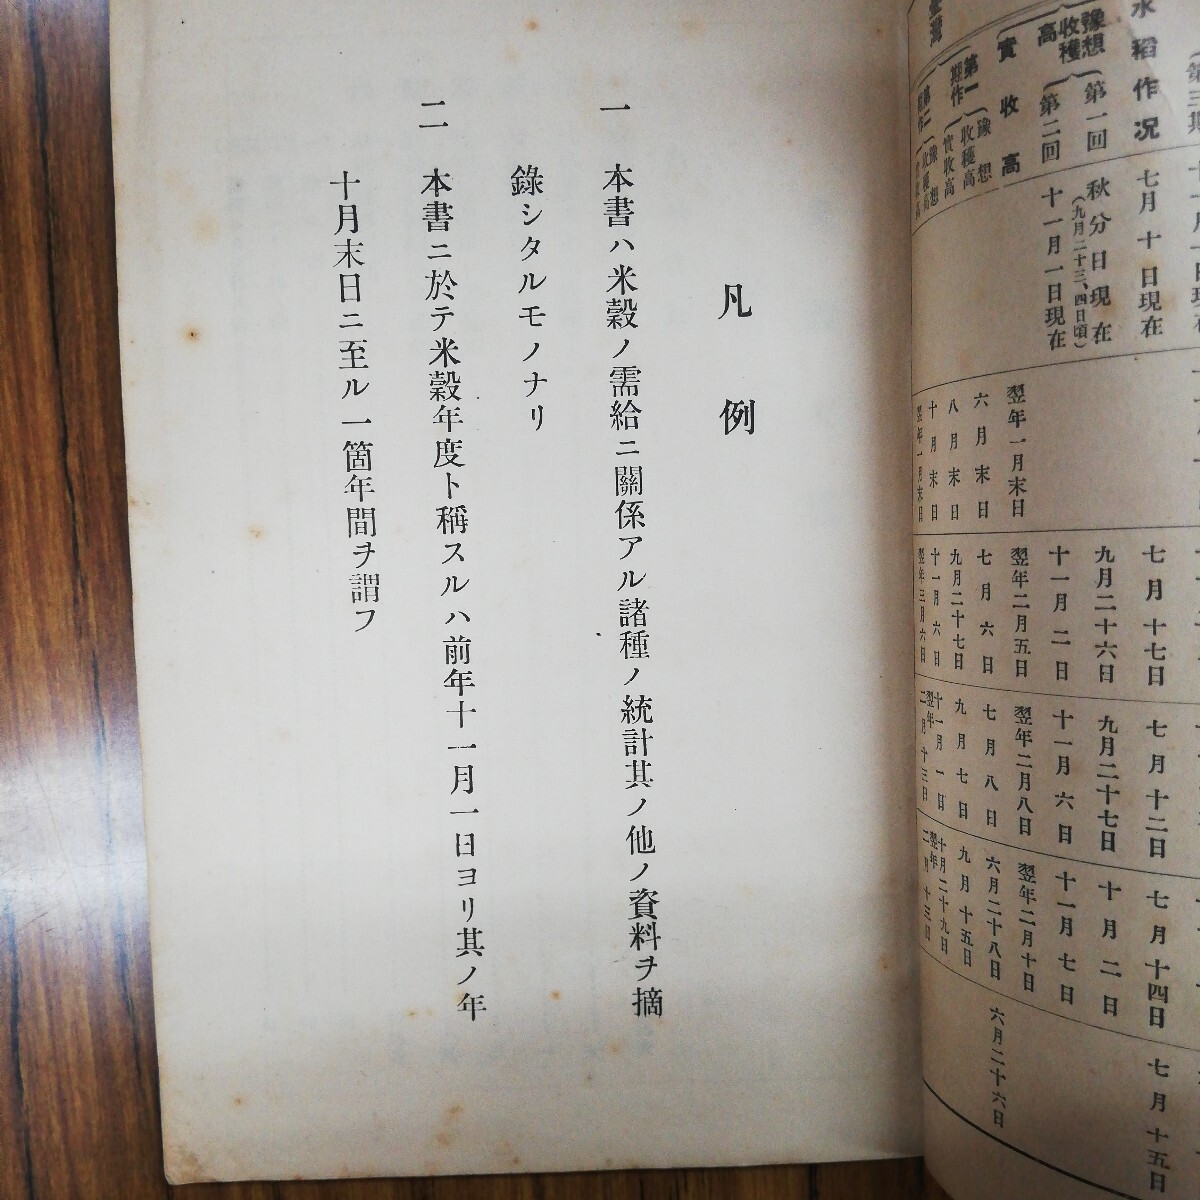 水稻作況
七月十日現在
七月十七日
七月十二日
七月十四日
七月十五日
豫想收穫高
第一回
秋分日現在
(九月二十三、四日頃)
九月二十六日
九月二十七日
十月二日
第二回
十一月一日現在
十一月二日
十一月六日
十一月七日
實收高
翌年一月末日
翌年二月五日
翌年二月八日
翌年二月十日
臺灣
第一期作
豫想收穫高
六月末日
七月六日
七月八日
六月二十八日
六月二十六日
實收高
八月末日
九月二十七日
九月七日
九月十五日
第二期作
豫想收穫高
十月末日
十一月六日
十一月一日
十月二十九日
實收高
翌年一月末日
翌年三月六日
翌年二月十三日
翌年二月十三日
凡例
一 本書ハ米穀ノ需給ニ關係アル諸種ノ統計其ノ他ノ資料ヲ摘
錄シタルモノナリ
二 本書ニ於テ米穀年度ト稱スルハ前年十一月一日ヨリ其ノ年
十月末日ニ至ル一箇年間ヲ謂フ